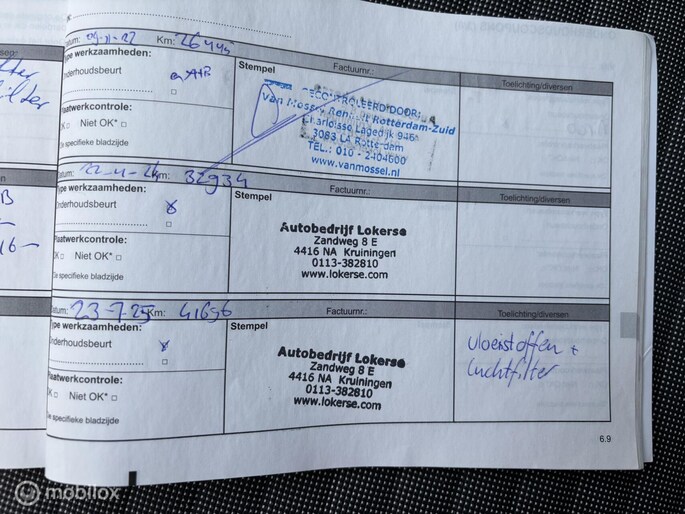 Datum: 09-11-22 Km: 26445
Type werkzaamheden:
Onderhoudsbeurt
Stempel
Factuurnr.:
Toelichting/diversen
GECONTROLEERD DOOR:
Van Mossel Renault Rotterdam-Zuid
Charloisse Lagedijk 946
3083 LA Rotterdam
TEL.: 010 - 2404600
www.vanmossel.nl
Plaatwerkcontrole:
OK □ Niet OK* □
Zie specifieke bladzijde
Datum: 22-11-24 Km: 32934
Type werkzaamheden:
Onderhoudsbeurt
Stempel
Factuurnr.:
Toelichting/diversen
Autobedrijf Lokerse
Zandweg 8 E
4416 NA Kruiningen
0113-382810
www.lokerse.com
Plaatwerkcontrole:
OK □ Niet OK* □
Zie specifieke bladzijde
Datum: 23-7-25 Km: 41656
Type werkzaamheden:
Onderhoudsbeurt
Stempel
Factuurnr.:
Toelichting/diversen
Autobedrijf Lokerse
Zandweg 8 E
4416 NA Kruiningen
0113-382810
www.lokerse.com
vloeistoffen +
luchtfilter
Plaatwerkcontrole:
OK □ Niet OK* □
Zie specifieke bladzijde
6.9
mobilox